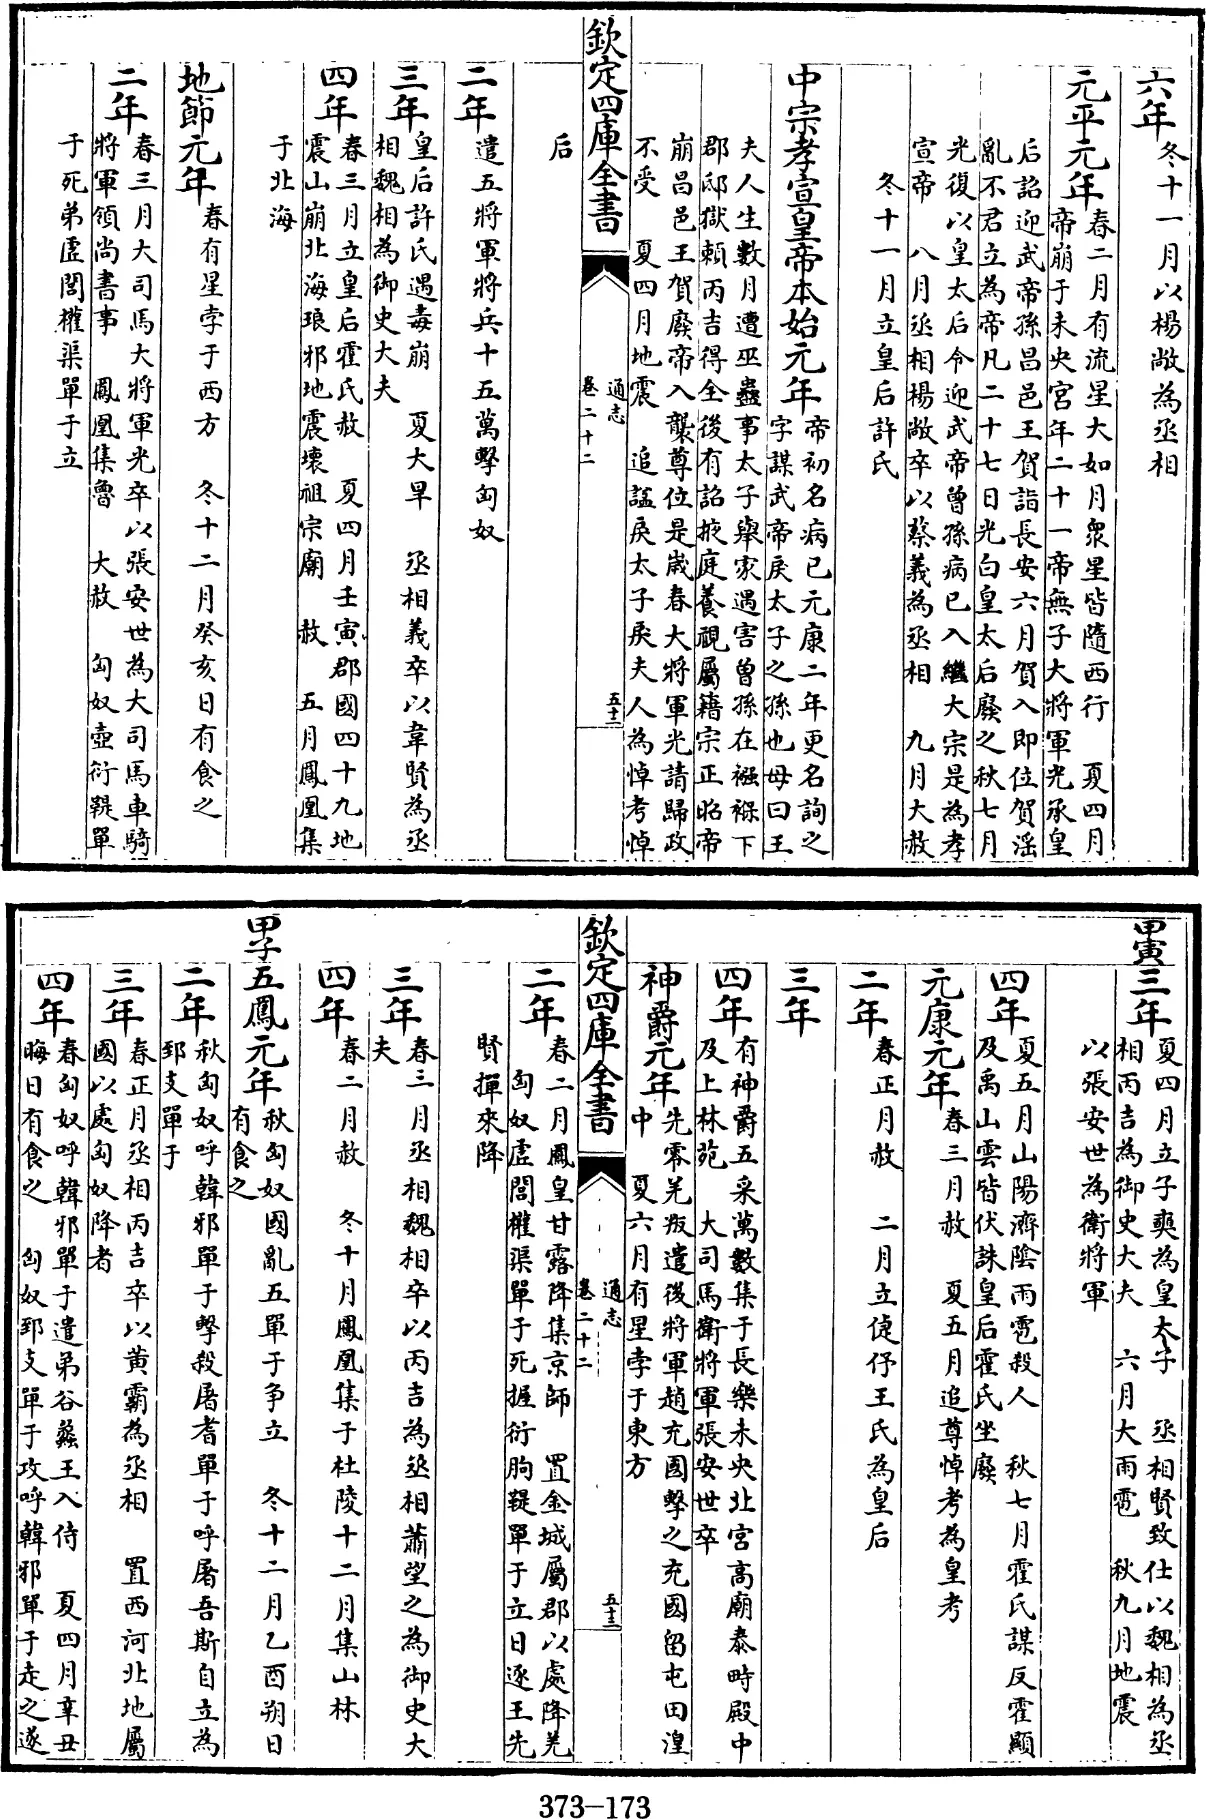 六年
冬十一月以楊敞為丞相
元平元年
春二月有流星大如月衆星皆隨西行　夏四月
帝崩于未央宮年二十一帝無子大將軍光承皇
后詔迎武帝孫昌邑王賀詣長安六月賀入即位賀淫
亂不君立為帝凡二十七日光白皇太后廢之秋七月
光復以皇太后令迎武帝曾孫病已入繼大宗是為孝
宣帝　八月丞相楊敞卒以蔡義為丞相　九月大赦
冬十一月立皇后許氏
中宗孝宣皇帝本始元年
帝初名病已元康二年更名詢之
字謀武帝戾太子之孫也母曰王
夫人生數月遭巫蠱事太子舉家遇害曽孫在襁褓下
郡邸獄頼丙吉得全後有詔掖庭養視屬籍宗正昭帝
崩昌邑王賀廢帝入襲尊位是嵗春大將軍光請歸政
不受　夏四月地震　追諡戾太子戾夫人為悼考悼
欽定四庫全書
通志
卷二十二
五十二
后
二年
遣五將軍將兵十五萬擊匈奴
三年
皇后許氏遇毒崩　夏大旱　丞相義卒以韋賢為丞
相魏相為御史大夫
四年
春三月立皇后霍氏赦　夏四月壬寅郡國四十九地
震山崩北海琅邪地震壞祖宗廟　赦　五月鳳凰集
于北海
地節元年
春有星孛于西方　冬十二月癸亥日有食之
二年
春三月大司馬大將軍光卒以張安世為大司馬車騎
將軍領尚書事　鳳凰集魯　大赦　匈奴壺衍鞮單
于死弟虛閭權渠單于立
甲寅
三年
夏四月立子奭為皇太子　丞相賢致仕以魏相為丞
相丙吉為御史大夫　六月大雨雹　秋九月地震
以張安世為衛將軍
四年
夏五月山陽濟陰雨雹殺人　秋七月霍氏謀反霍顯
及禹山雲皆伏誅皇后霍氏坐廢
元康元年
春三月赦　夏五月追尊悼考為皇考
二年
春正月赦　二月立倢伃王氏為皇后
三年
四年
有神爵五采萬數集于長樂未央北宮高廟泰畤殿中
及上林苑　大司馬衛將軍張安世卒
神爵元年
先零羌叛遣後將軍趙充國擊之充國留屯田湟
中　夏六月有星孛于東方
欽定四庫全書
通志
卷二十二
五十三
二年
春二月鳳皇甘露降集京師　置金城屬郡以處降羌
匈奴虛閭權渠單于死握衍朐鞮單于立日逐王先
賢撣來降
三年
春三月丞相魏相卒以丙吉為丞相蕭望之為御史大
夫
四年
春二月赦　冬十月鳳凰集于杜陵十二月集山林
甲子
五鳳元年
秋匈奴國亂五單于争立　冬十二月乙酉朔日
有食之
二年
秋匈奴呼韓邪單于擊殺屠耆單于呼屠吾斯自立為
郅支單于
三年
春正月丞相丙吉卒以黄霸為丞相　置西河北地屬
國以處匈奴降者
四年
春匈奴呼韓邪單于遣弟谷蠡王入侍　夏四月辛丑
晦日有食之　匈奴郅支單于攻呼韓邪單于走之遂
373-173